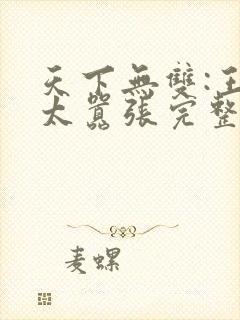 天下無雙:王
太囂張完整
麦螺